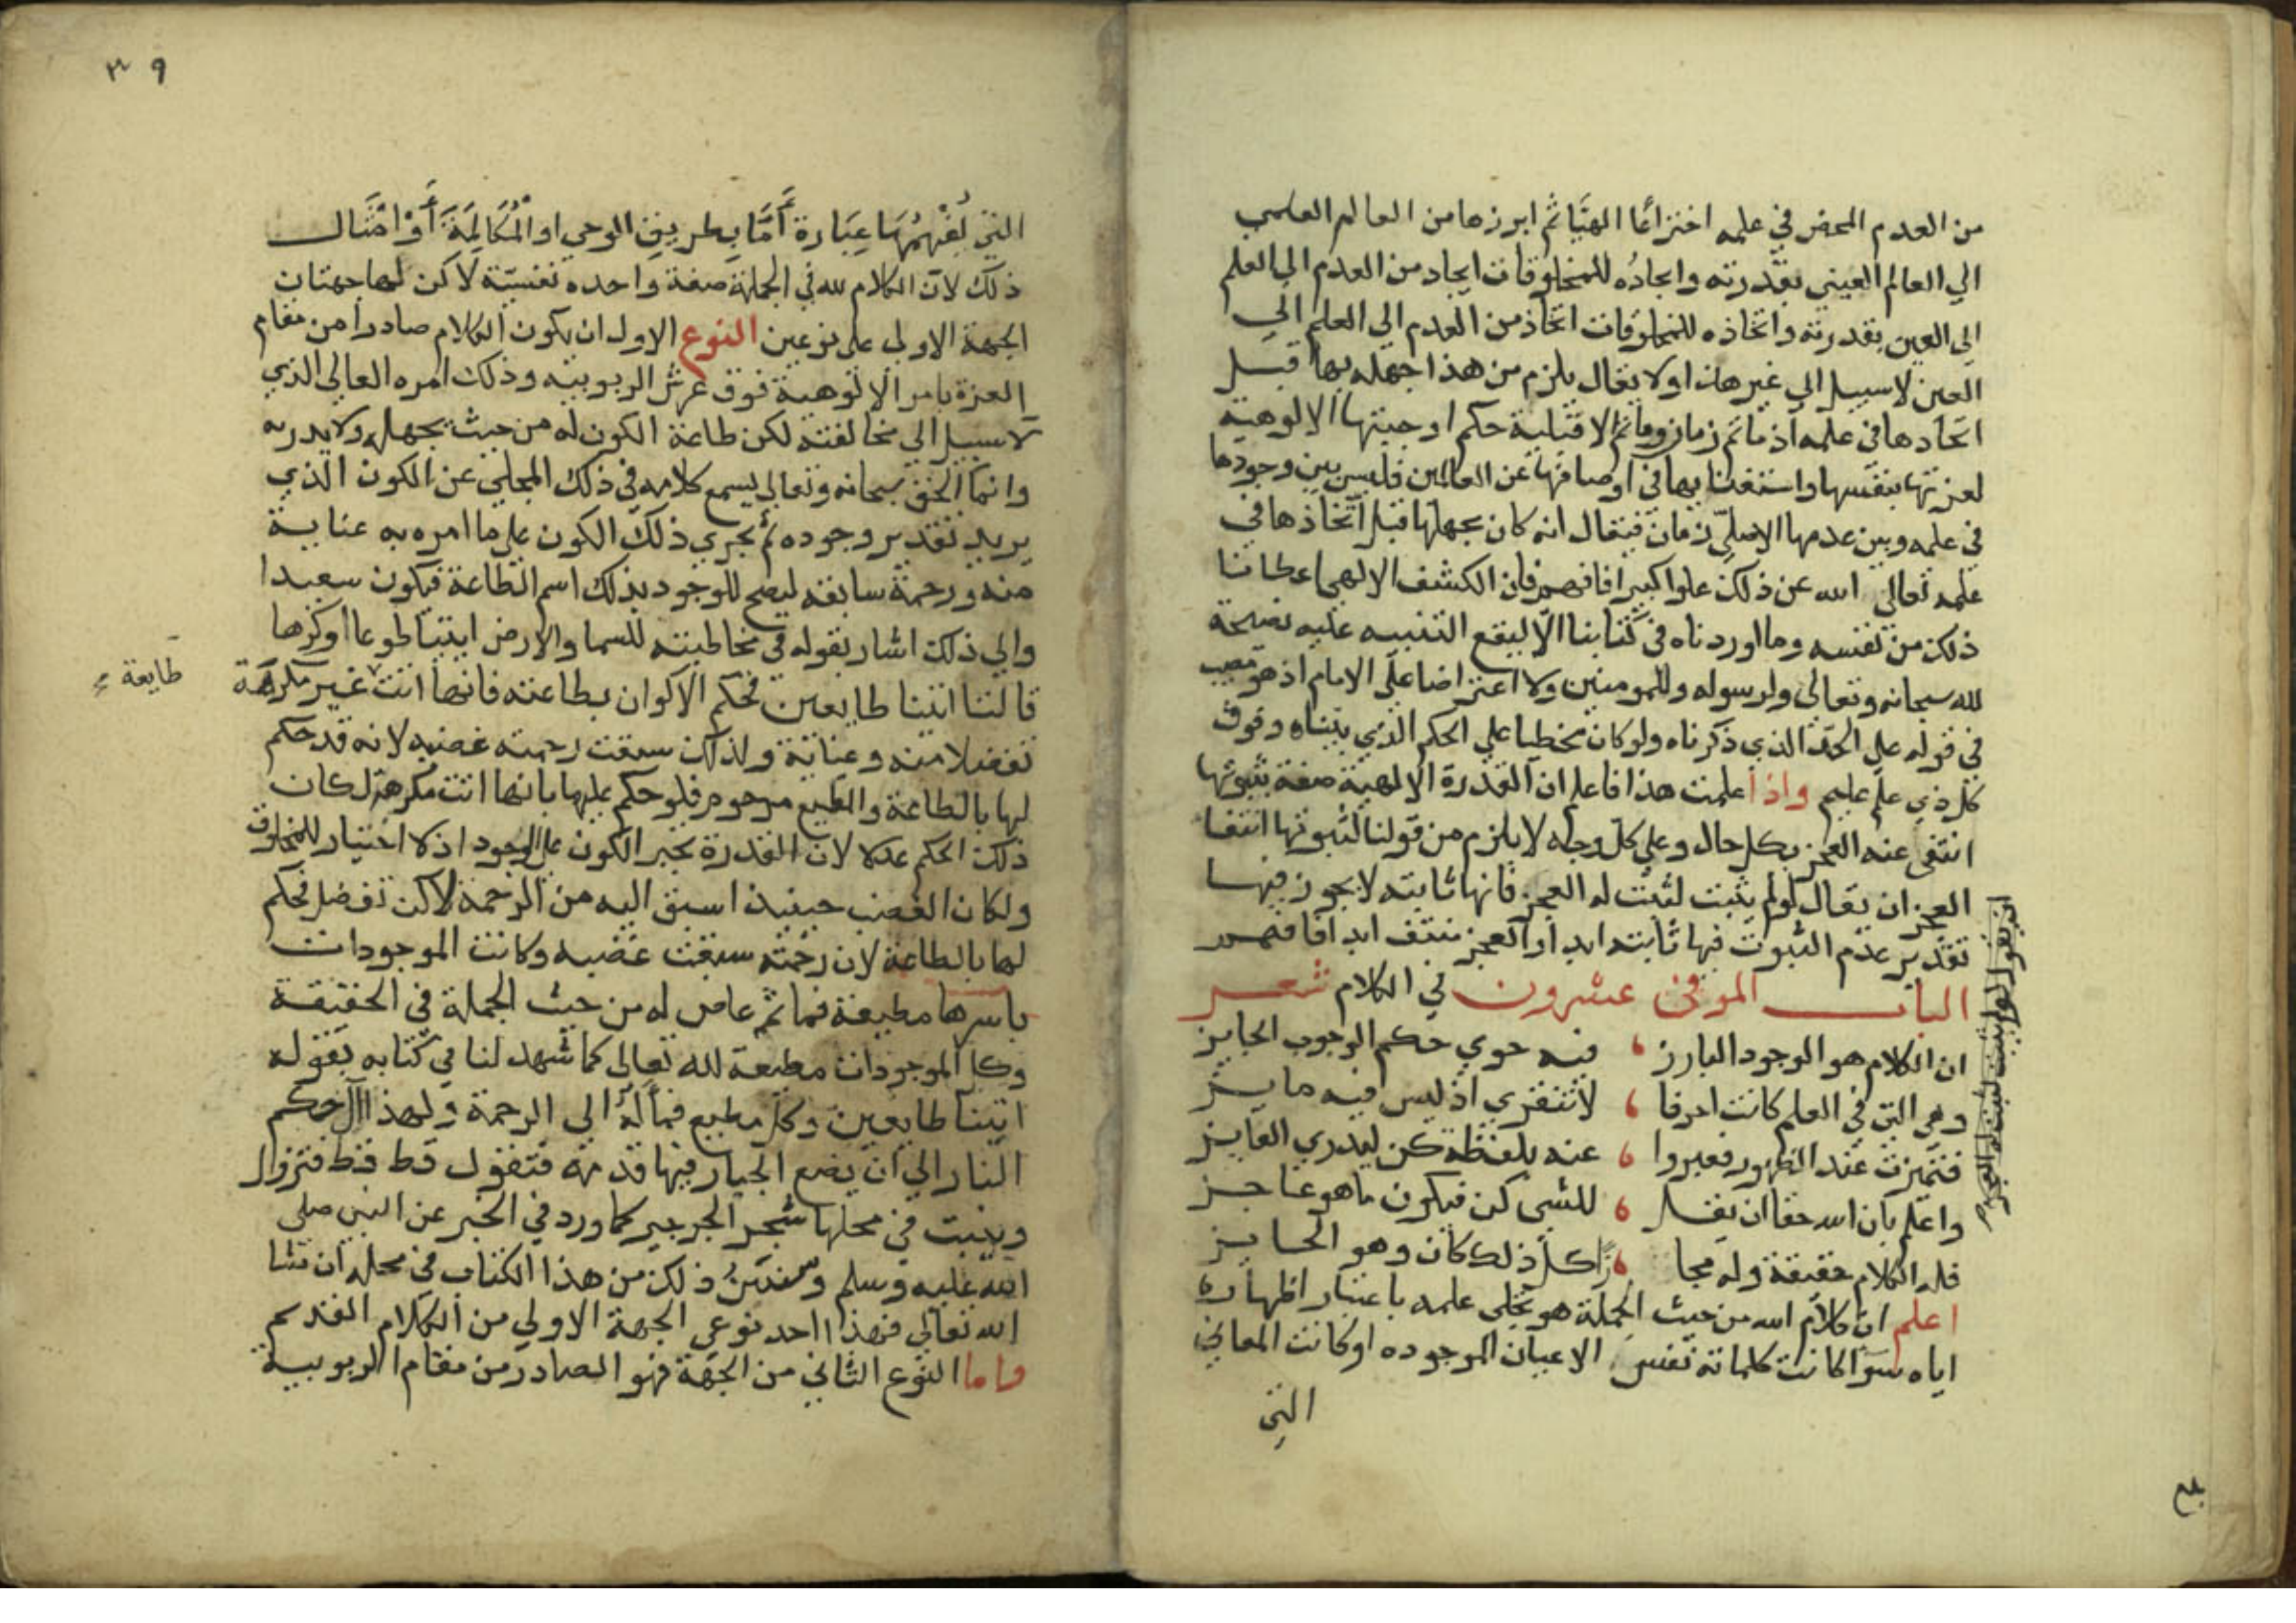 من العدم المحض في علمه اختراعًا الهيًا ثم ابرزها من العالم العلمي
الي العالم العيني بقدرته وايجاده للمخلوقات ايجاد من العدم الي العلم
الي العين بقدرته واتخاذه للمخلوقات اتخاذ من العدم الي العلم الي
العين لا سبيل الي غير هذا ولا يقال يلزم من هذا جهله بها قبل
اتحادها في علمه اذ ما ثم زمان وما ثم الا قبلية حكم اوجبتها الالوهية
لعزتها بنفسها واستغنايها في اوصافها عن العالمين فليس بين وجودها
في علمه وبين عدمها الاصلي زمان فيقال انه كان يجهلها قبل اتخاذها في
علمه تعالي الله عن ذلك علوا كبيرا فافهم فان الكشف الالهي اعطانا
ذلك من نفسه وما اوردناه في كتابنا الا ليقع التنبيه عليه نصيحة
لله سبحانه وتعالي ولرسوله وللمومنين ولا اعتراضا علي الامام اذ هو مصيب
في قوله علي الحد الذي ذكرناه ولو كان مخطيا علي الحكم الذي بيناه وفوق
كل ذي علم عليم واذا علمت هذا فاعلم ان القدرة الالهية صفة بثبوتها
انتفي عنه العجز بكل حال وعلي كل وجه لا يلزم من قولنا لثبوتها انتفا
العجز ان يقال لو لم يثبت لثبت له العجز فانها ثابته لا يجوز فيها
تقدير عدم الثبوت فيها ثابته ابدا والعجز منتف ابدا فافهم
ان يقول لو لم تثبت لثبت له العجز
الباب الموفي عشرون في الكلام شعر
ان الكلام هو الوجود البارز ، فيه حوي حكم الوجوب الجايز
وهي التي في العلم كانت احرفا ، لا تنقري اذ ليس فيه مايز
فتميزت عند الظهور فعبروا ، عنه بلفظة كن ليدري الفايز
واعلم بان الله حقا ان يقل ، للشي كن فيكون ما هو عاجز
فله الكلام حقيقة وله مجا ، زًا كل ذلك كان وهو الحايز
اعلم ان كلام الله من حيث الجملة هو تجلي علمه باعتبار اظهاره
اياه سوا كانت كلماته نفس الاعيان الموجوده او كانت المعاني
التي
بلغ
٣٩
التي يُفْهِمُهَا عِبَارة أمّا بطريق الوحي او الْمُكَالَمَةَ أَوْ امْثَال
ذلك لان الكلام لله في الجملة صفة واحده نفسيّة لاكن لها جهتان
الجهة الاولي علي نوعين النوع الاول ان يكون الكلام صادرا من مقام
العزة بامر الالوهية فوق عرش الربوبية وذلك امره العالي الذي
لا سبيل الي مخالفته لكن طاعة الكون له من حيث يجهله ولا يدريه
وانما الحق سبحانه وتعالي يسمع كلامه في ذلك المجلي عن الكون الذي
يريد تقدير وجوده ثم يجري ذلك الكون علي ما امره به عناية
منه ورحمة سابقه ليصح للوجود بذلك اسم الطاعة فيكون سعيدا
والي ذلك اشار بقوله في مخاطبته للسما والارض ايتيا طوعا او كرها
قالتا اتينا طايعين فحكم الاكوان بطاعته فانها اتت غير مكرهة
طايعة
تفضلا منه وعناية ولذلك سبقت رحمته غضبه لانه قد حكم
لها بالطاعة والمطيع مرحوم فلو حكم عليها بانها اتت مكرهة لكان
ذلك الحكم عدلا لان القدرة تجبر الكون علي الوجود اذ لا اختيار للمخلوق
ولكان الغضب حينيذ اسبق اليه من الرحمة لاكن تفضل فحكم
لها بالطاعة لان رحمته سبقت غضبه وكانت الموجودات
باسرها مطيعة فما ثم عاص له من حيث الجملة في الحقيقة
وكل الموجودات مطيعة لله تعالي كما شهد لنا في كتابه بقوله
اتينا طايعين وكل مطيع فمآله الي الرحمة ولهذا آل حكم
النار الي ان يضع الجبار فيها قدمه فتقول قط قط فتزول
وينبت في محلها شجر الجرجير كما ورد في الخبر عن النبي صلي
الله عليه وسلم وسنبين ذلك من هذا الكتاب في محله ان شا
الله تعالي فهذا احد نوعي الجهة الاولي من الكلام القديم
واما النوع الثاني من الجهة فهو الصادر من مقام الربوبية